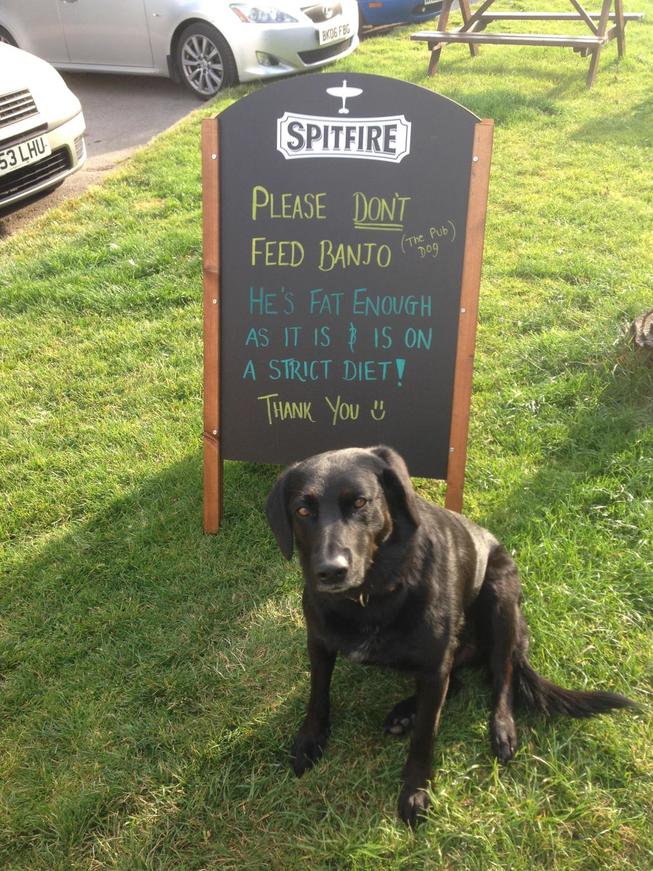 BK06 FBG
53 LHU
SPITFIRE
PLEASE DON'T
FEED BANJO (The Pub
Dog)
HE'S FAT ENOUGH
AS IT IS & IS ON
A STRICT DIET!
THANK YOU